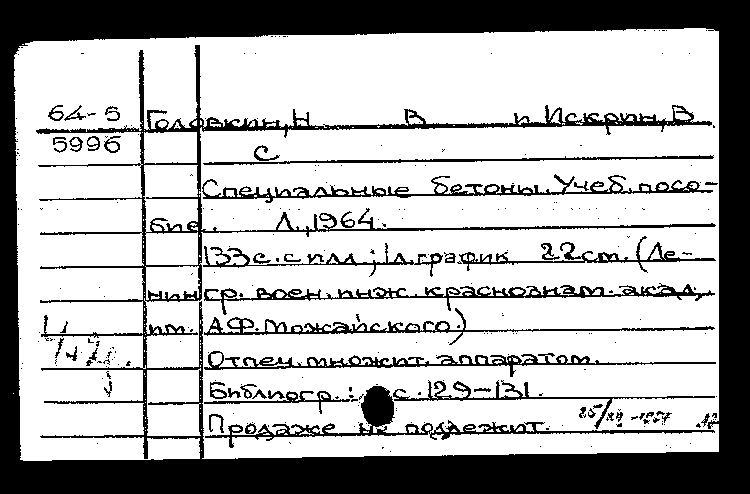 64-5
5996
Головкин, Н В и Искрин, В
С
Специальные бетоны. Учеб. посо-
бие. Л., 1964.
133 с. с илл; 1 л. график 22 см. (Ле-
нингр. воен. инж. краснознам. акад.
им. А.Ф. Можайского)
Отпеч. множит. аппаратом.
Библиогр.: с. 129-131.
Продаже не подлежит.